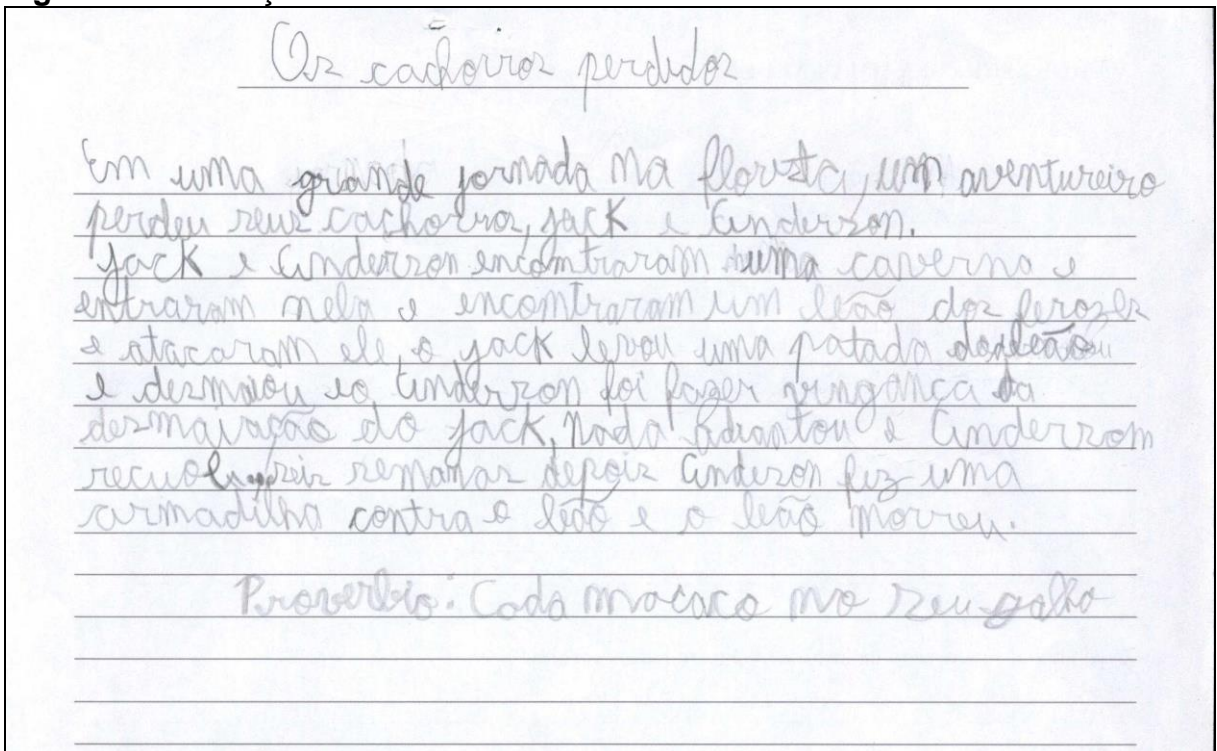 Os cachorros perdidos
Em uma grande jornada na floresta, um aventureiro
perdeu seus cachorros, jack e Anderson.
jack e Anderson encontraram uma caverna e
entraram nela e encontraram um leão dos ferozes
e atacaram ele, o jack levou uma patada do leão
e desmaiou e o Anderson foi fazer vingança da
desmaiação do jack, nada adiantou e Anderson
recuou seis semanas depois Anderson fez uma
armadilha contra o leão e o leão morreu.
Proverbio: Cada macaco no seu galho